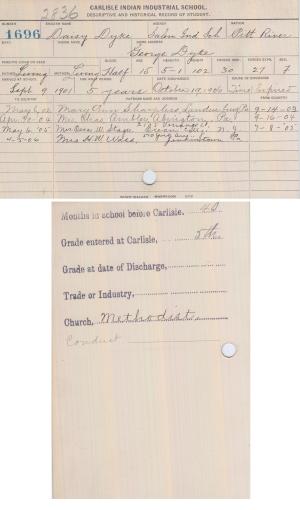 2836 CARLISLE INDIAN INDUSTRIAL SCHOOL.
DESCRIPTIVE AND HISTORICAL RECORD OF STUDENT.
NUMBER ENGLISH NAME AGENCY NATION
1696 Daisy Dyke Salem Ind Sch Pitt River
George Dyke
Living Living Half 15 5-1 102 30 27 F
Sept 9 1901 5 years October 19, 1906 Time Expired
TO COUNTRY PATRONS NAME AND ADDRESS FROM COUNTRY
May 6, 02 Mary Ann Sharpless 9-14-03
Apr 90-04 Abington, Pa. 9-16-04
May 6, '05 Mrs Stage Ocean City, N. J 7-8-05
4-5-06 Mrs H. W. Jenkintown Pa
Months in school before Carlisle, 40
Grade entered at Carlisle, 5th
Grade at date of Discharge,
Trade or Industry,
Church, Methodist
Conduct